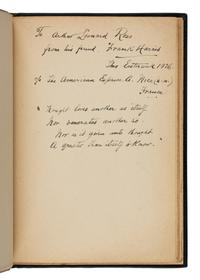 To Arthur Leonard Ross
from his friend, Frank Harris
This 1926.
c/o The American Express Co. Nice (a.m.)
France
"Nought loves another as itself
Nor venerates another so.
Nor is it given unto thought
A greater than itself to know."